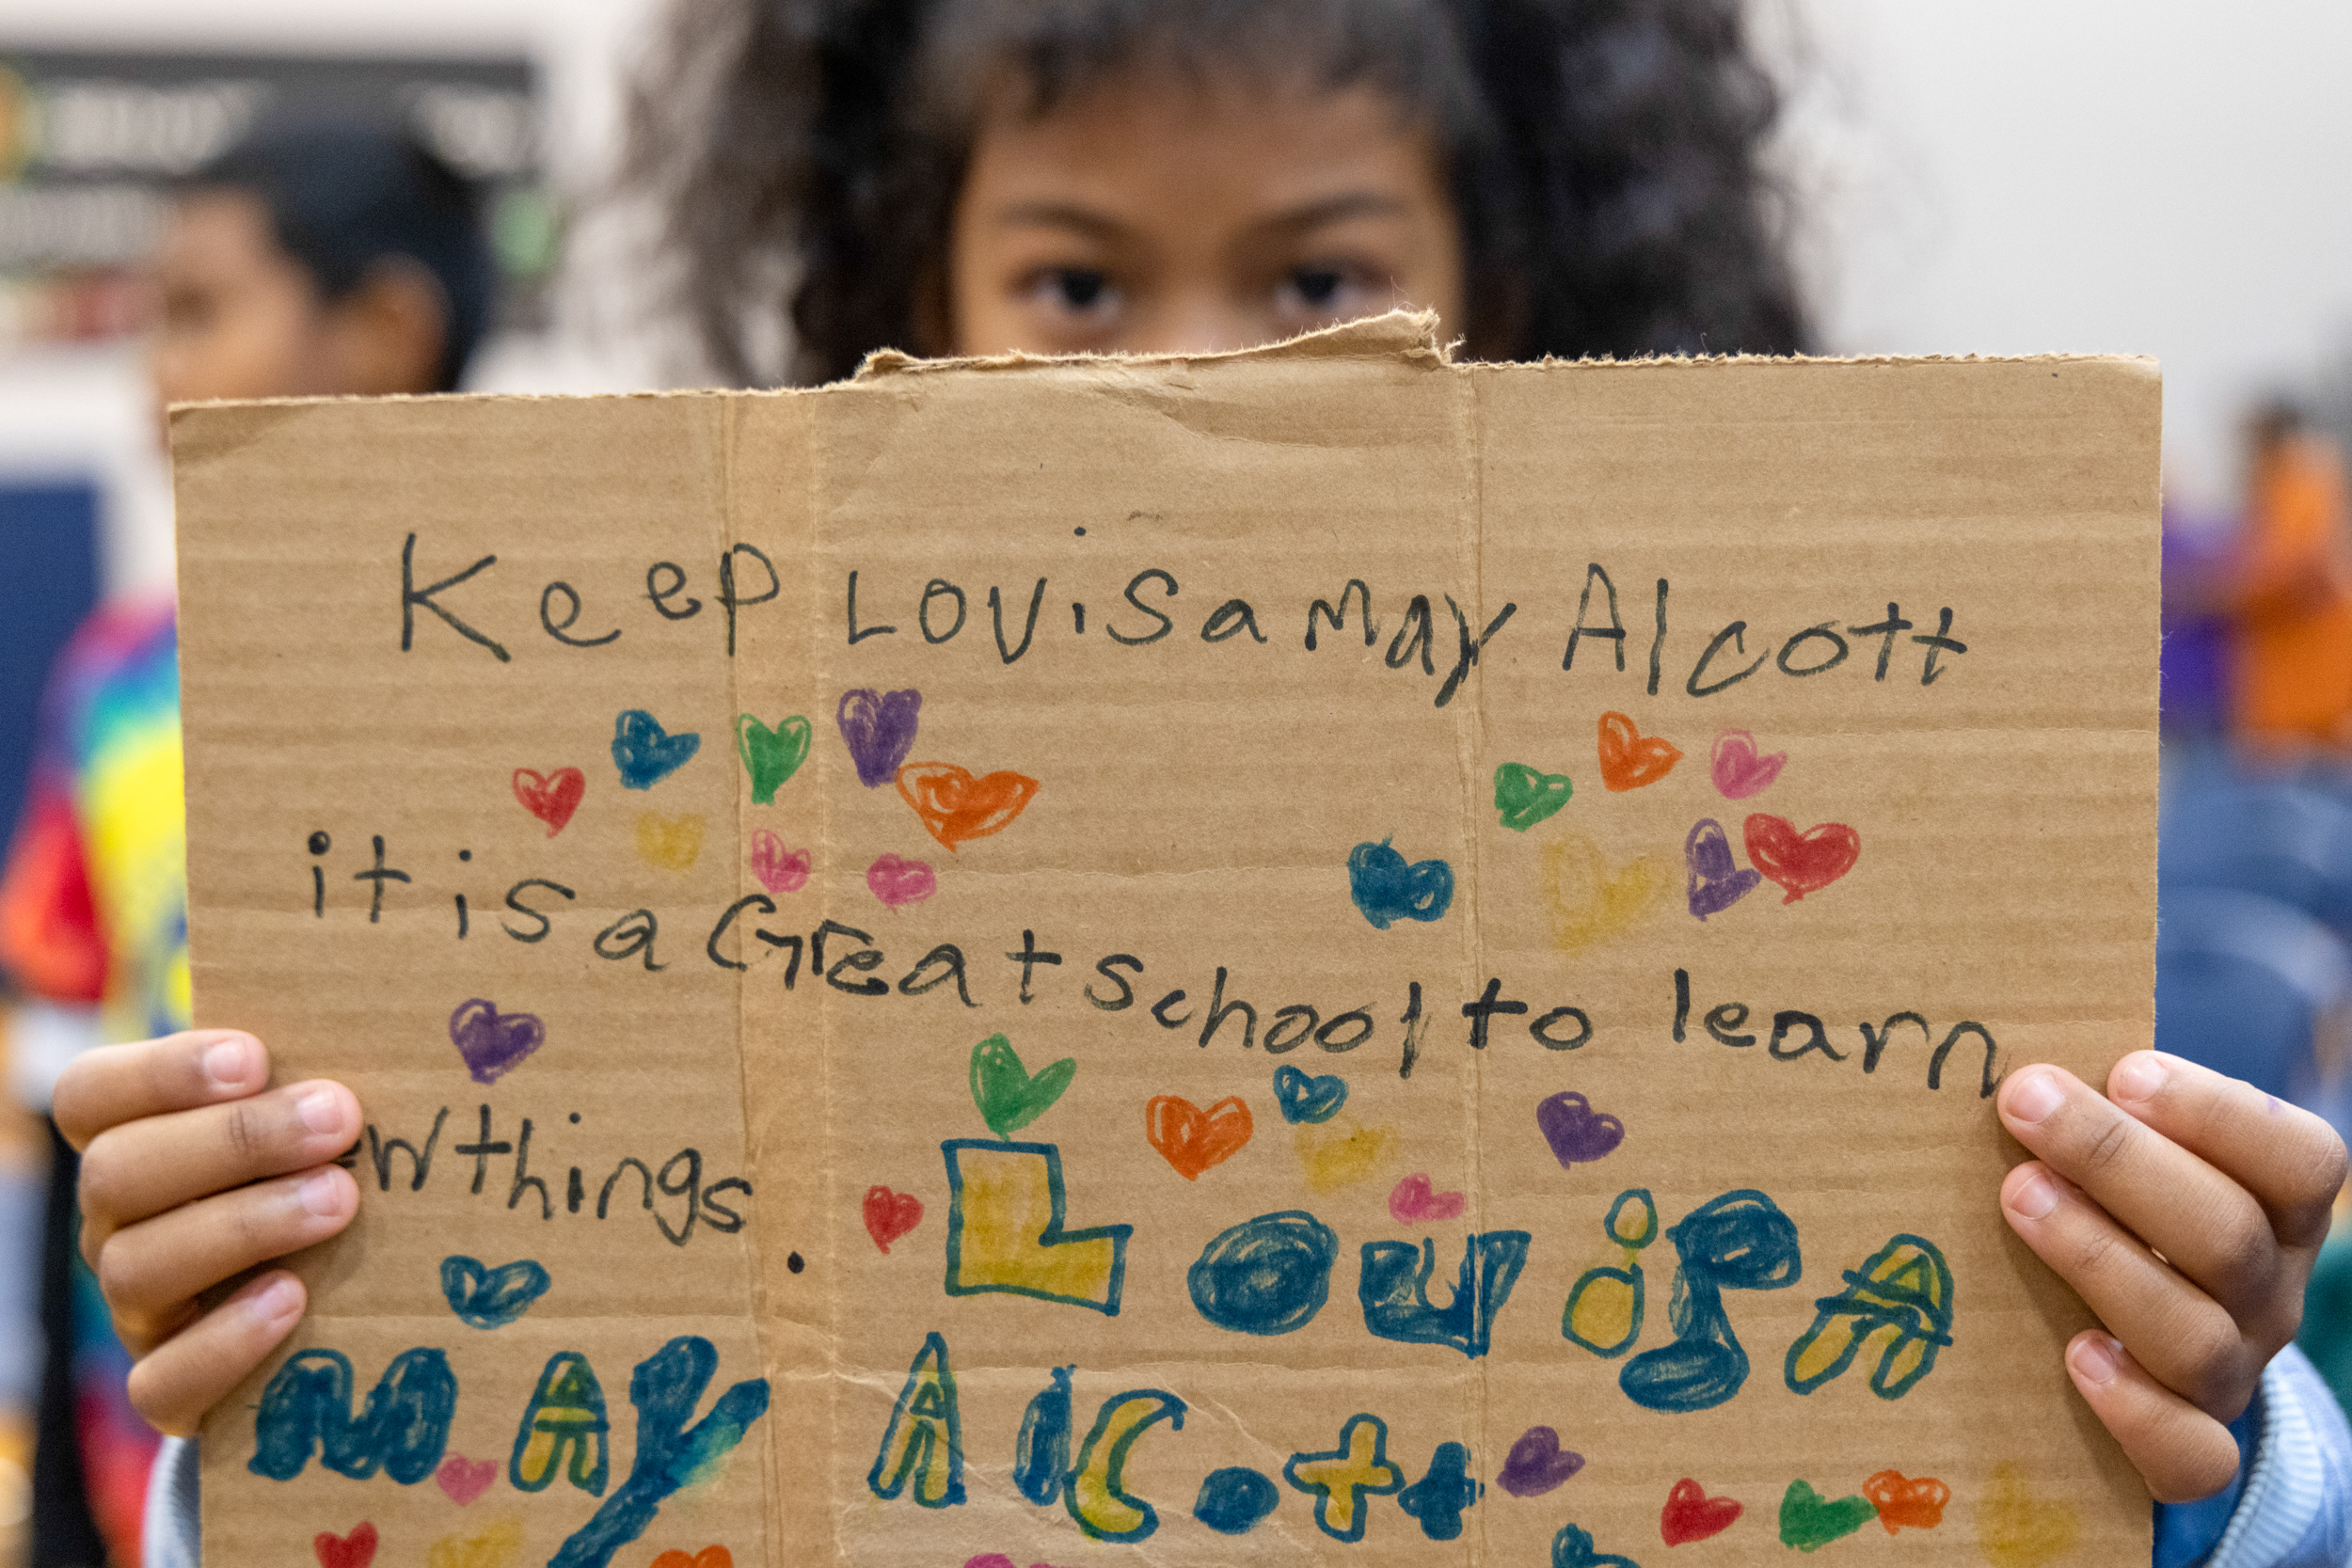 Keep Louisa May Alcott
it is a Great school to learn
ew things.
LOUiSA
MAY Alcott